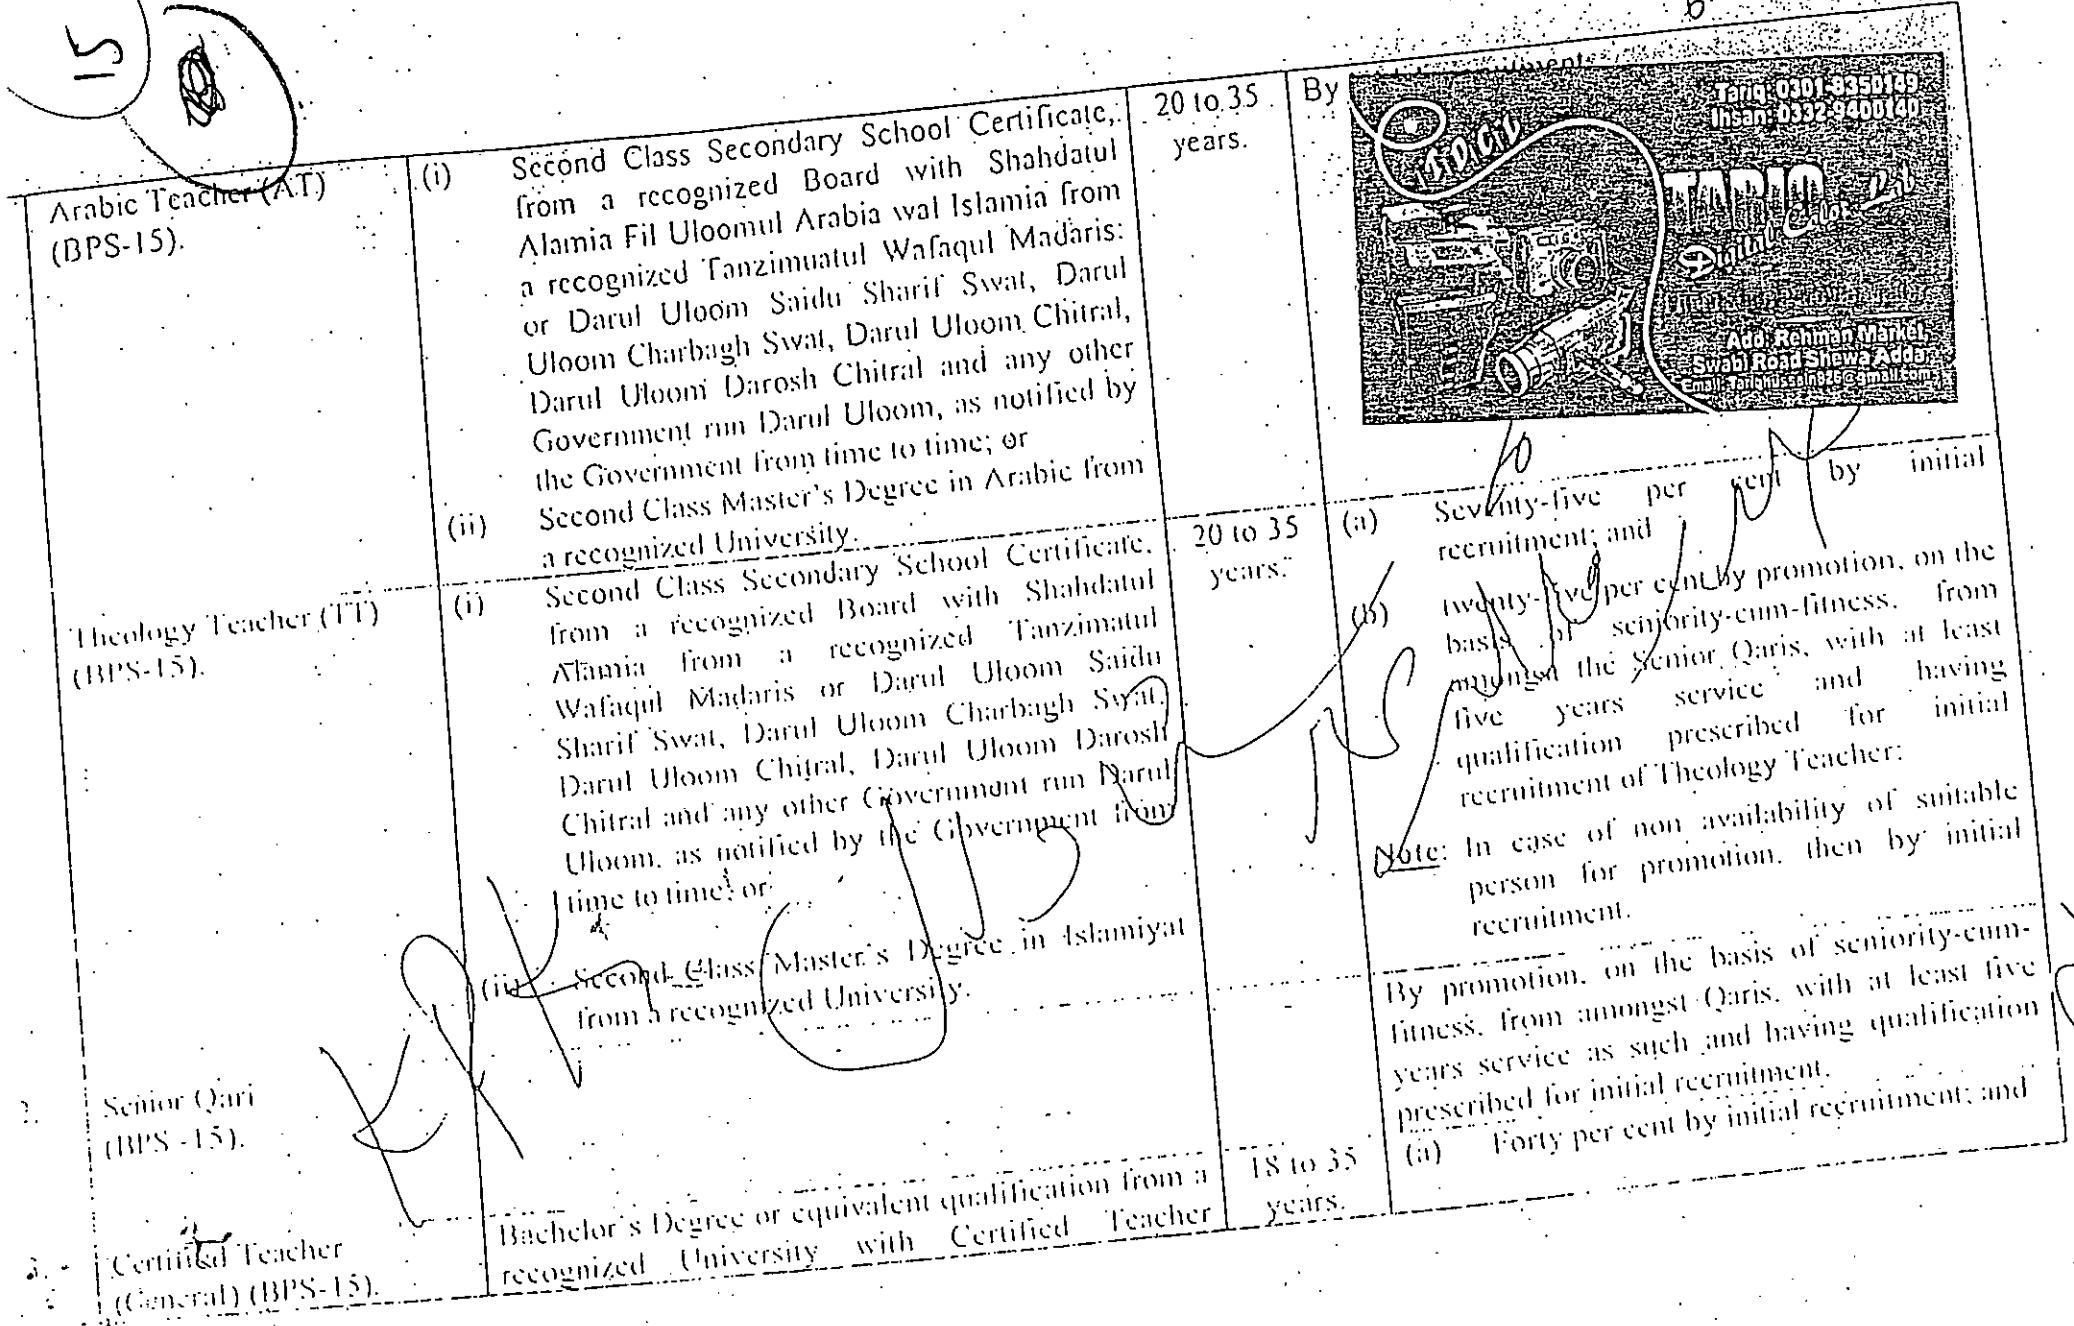 15
Arabic Teacher (AT)
(BPS-15).
(i) Second Class Secondary School Certificate,
from a recognized Board with Shahdatul
Alamia Fil Uloomul Arabia wal Islamia from
a recognized Tanzimuatul Wafaqul Madaris:
or Darul Uloom Saidu Sharif Swat, Darul
Uloom Charbagh Swat, Darul Uloom Chitral,
Darul Uloom Darosh Chitral and any other
Government run Darul Uloom, as notified by
the Government from time to time; or
(ii) Second Class Master's Degree in Arabic from
a recognized University.
20 to 35
years.
By
Tariq: 0301-8350149
Ihsan: 0332-9400140
TARIQ
Digital Color Lab
Add: Rehman Market,
Swabi Road Shewa Adda
Theology Teacher (TT)
(BPS-15).
(i) Second Class Secondary School Certificate,
from a recognized Board with Shahdatul
Alamia from a recognized Tanzimatul
Wafaqul Madaris or Darul Uloom Saidu
Sharif Swat, Darul Uloom Charbagh Swat,
Darul Uloom Chitral, Darul Uloom Darosh
Chitral and any other Government run Darul
Uloom, as notified by the Government from
time to time; or
(ii) Second Class Master's Degree in Islamiyat
from a recognized University.
20 to 35
years.
(a) Seventy-five per cent by initial
recruitment; and
(b) twenty-five per cent by promotion, on the
basis of seniority-cum-fitness, from
amongst the Senior Qaris, with at least
five years service and having
qualification prescribed for initial
recruitment of Theology Teacher:
Note: In case of non availability of suitable
person for promotion, then by initial
recruitment.
Senior Qari
(BPS -15).
-
By promotion, on the basis of seniority-cum-
fitness, from amongst Qaris, with at least five
years service as such and having qualification
prescribed for initial recruitment.
Certified Teacher
(General) (BPS-15).
Bachelor's Degree or equivalent qualification from a
recognized University with Certified Teacher
18 to 35
years.
(a) Forty per cent by initial recruitment; and